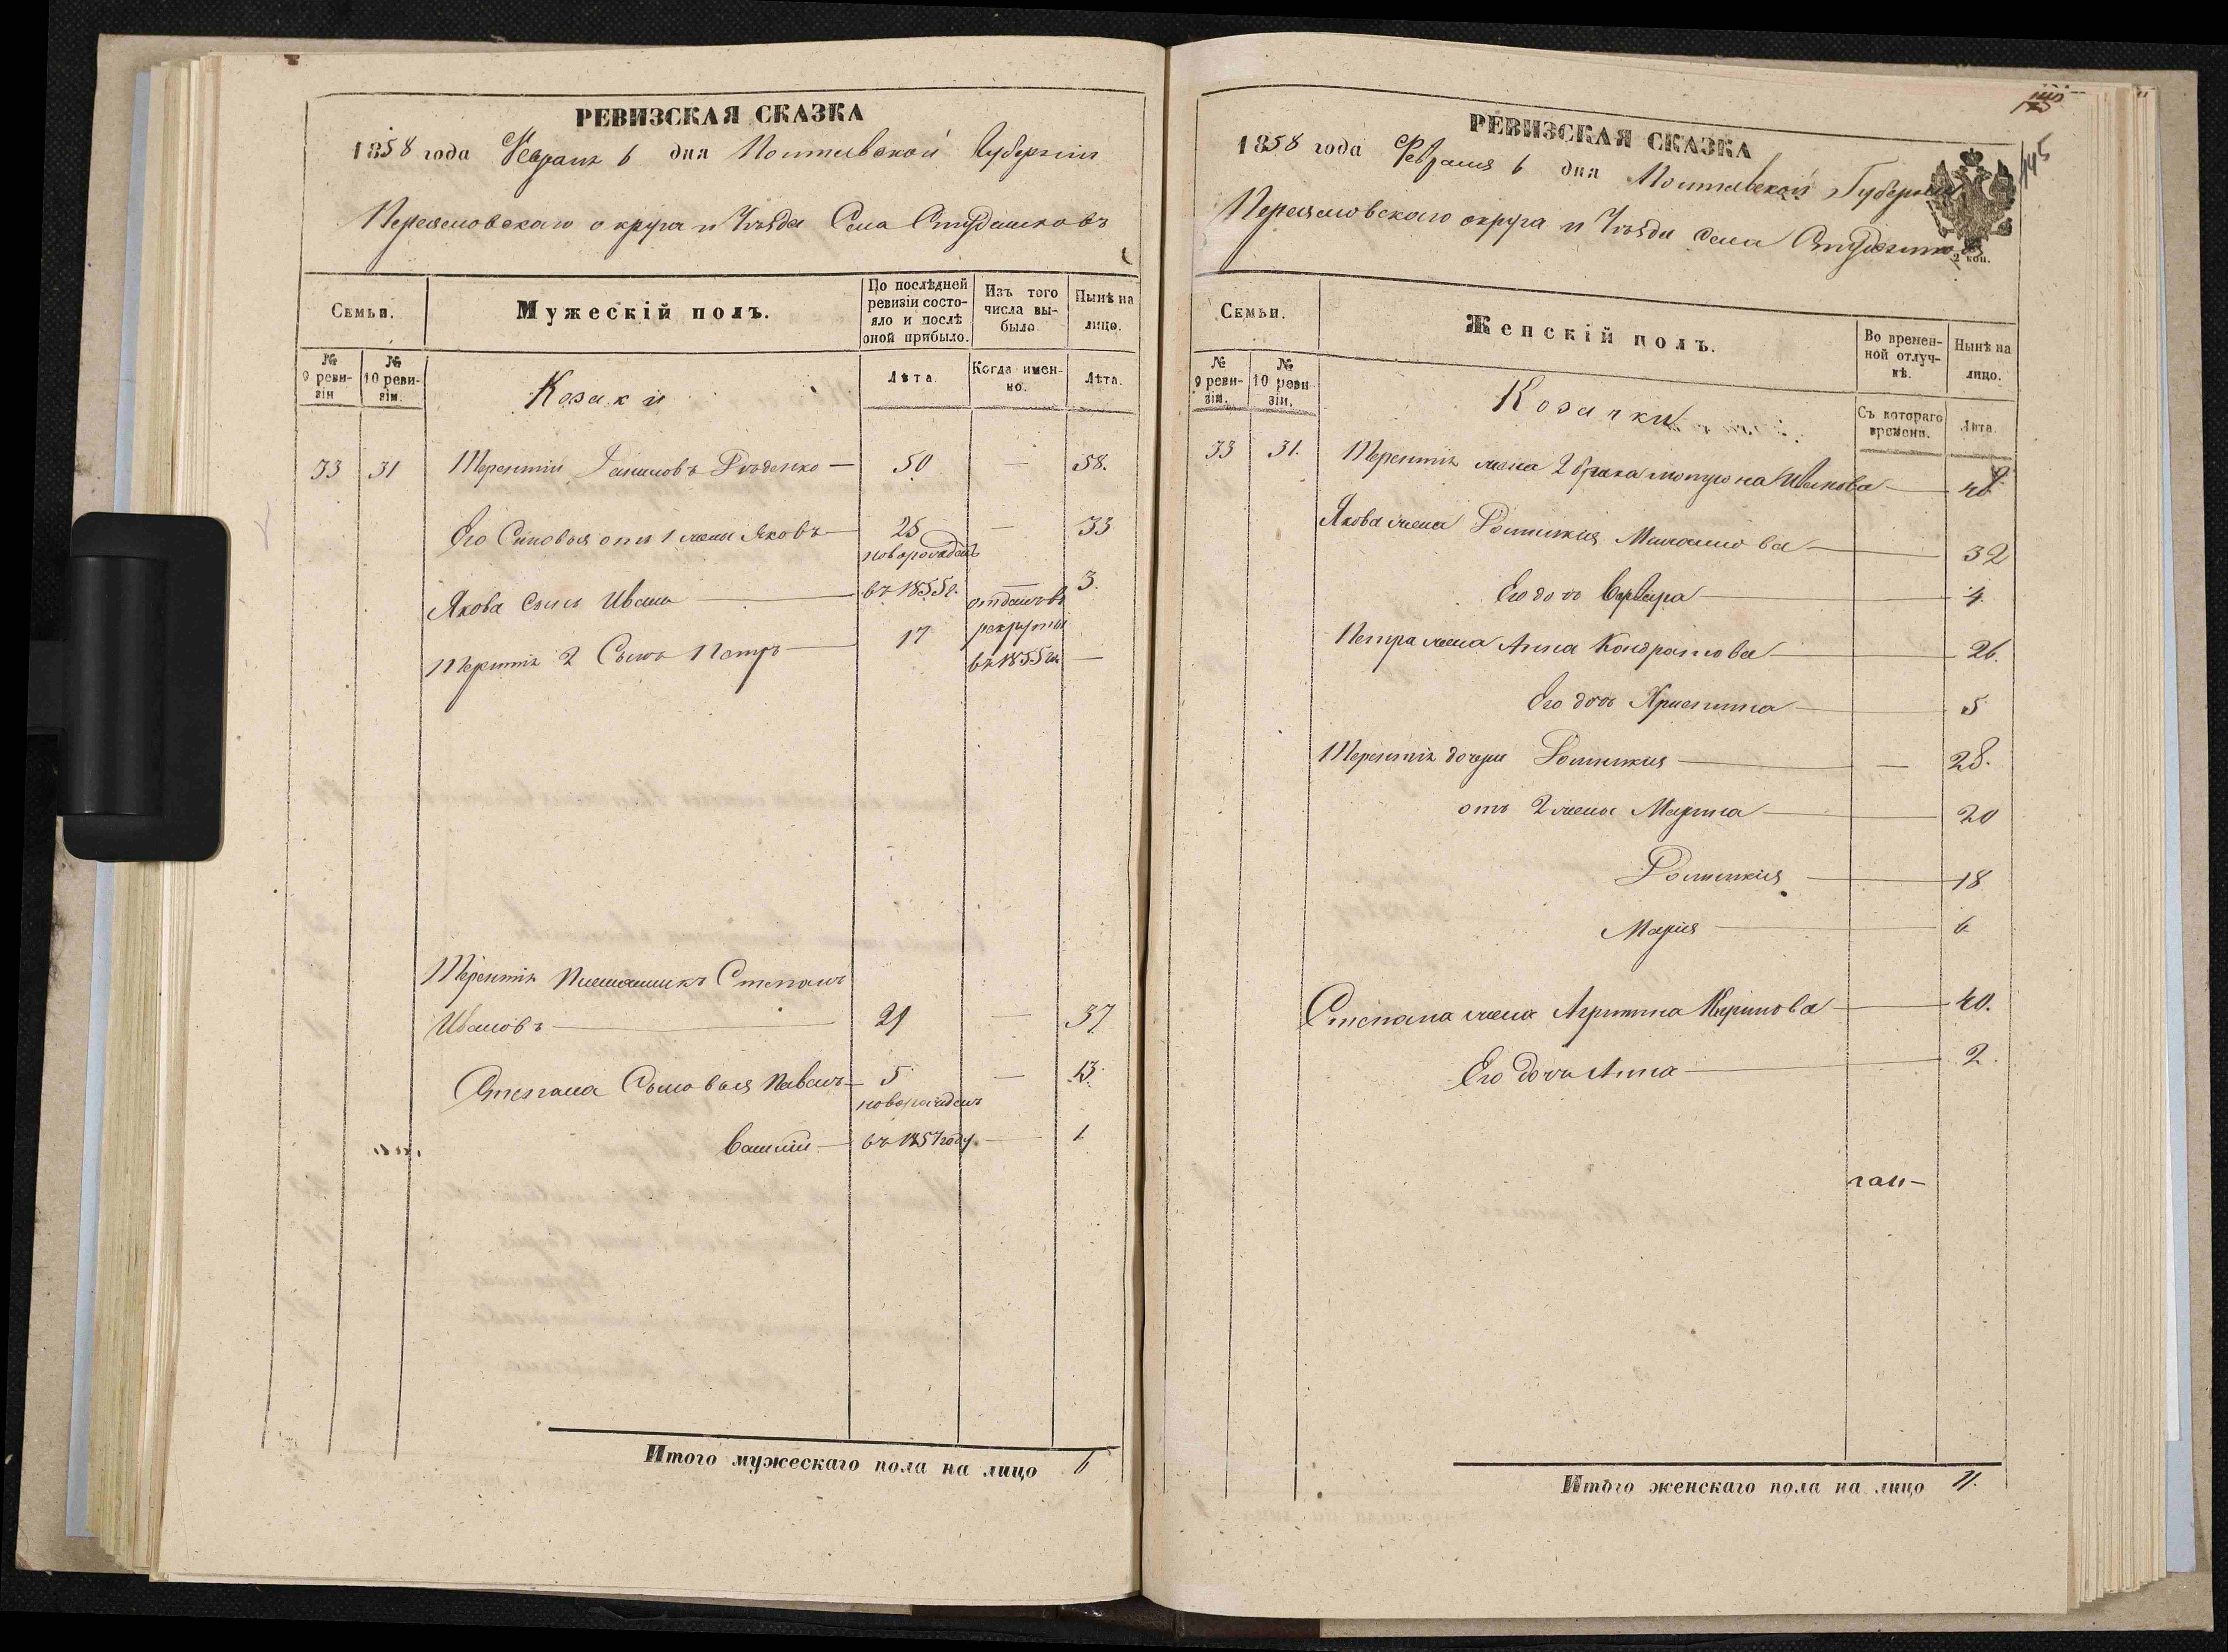 РЕВИЗСКАЯ СКАЗКА
1858 года Февраля 6 дня Полтавской Губерніи
Переясловскаго округа и Уѣзда Села Студениковъ
Семьи.
Мужескій полъ.
По послѣдней ревизіи состояло и послѣ оной прибыло.
Изъ того числа выбыло
Нынѣ на лицо.
№ 9 ревизіи
№ 10 ревизіи.
Козаки
Лѣта.
Когда именно.
Лѣта.
33 31 Терентій Даниловъ — 50 — 58.
Его Синовья отъ 1 жены Яковъ — 25 — 33
новорожденъ
Якова Сынъ Иванъ — въ 1855 г. — 3.
отданъ въ
рекруты
Терентія 2 Сынъ Петръ — 17 въ 1855 г. —
Терентія Племянникъ Степанъ
Ивановъ — 29 — 37
Степана Сыновья Павелъ — 5 — 13
новорожденъ
Василій — въ 1857 году — 1
Итого мужескаго пола на лицо 6
РЕВИЗСКАЯ СКАЗКА
145
1858 года Февраля 6 дня Полтавской Губерніи
Переясловскаго округа и Уѣзда села Студениковъ
2 коп.
Семьи.
Женскій полъ.
Во временной отлучкѣ.
Нынѣ на лицо.
№ 9 ревизіи.
№ 10 ревизіи.
Козачки
Съ котораго времени.
Лѣта.
33 31. Терентія жена 2 брака Мотрона Иванова —
Якова жена Мануилова — 32
Его дочь Варвара — 4.
Петра жена Анна Кондратова — 26.
Его дочь Христина — 5
Терентія дочери — — 28.
отъ 2 жены Марина — 20
— 18
Марія — 6
Степана жена Агрипина Кирилова — 40.
Его дочь Анна — 2.
Итого женскаго пола на лицо 11.